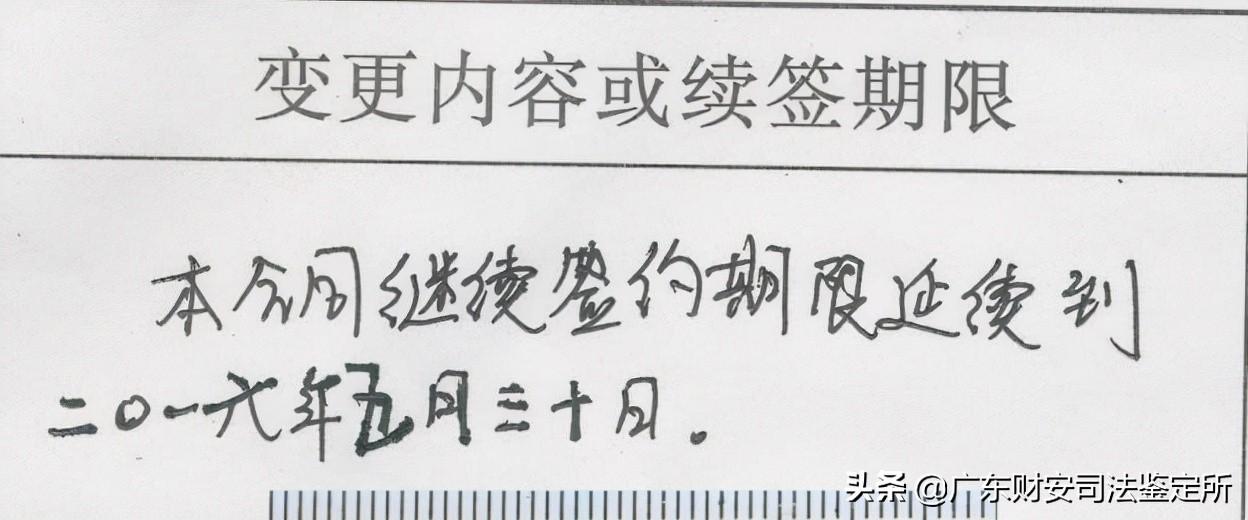 变更内容或续签期限
本合同继续签约期限延续到
二〇一六年五月三十日.
头条 @广东财安司法鉴定所